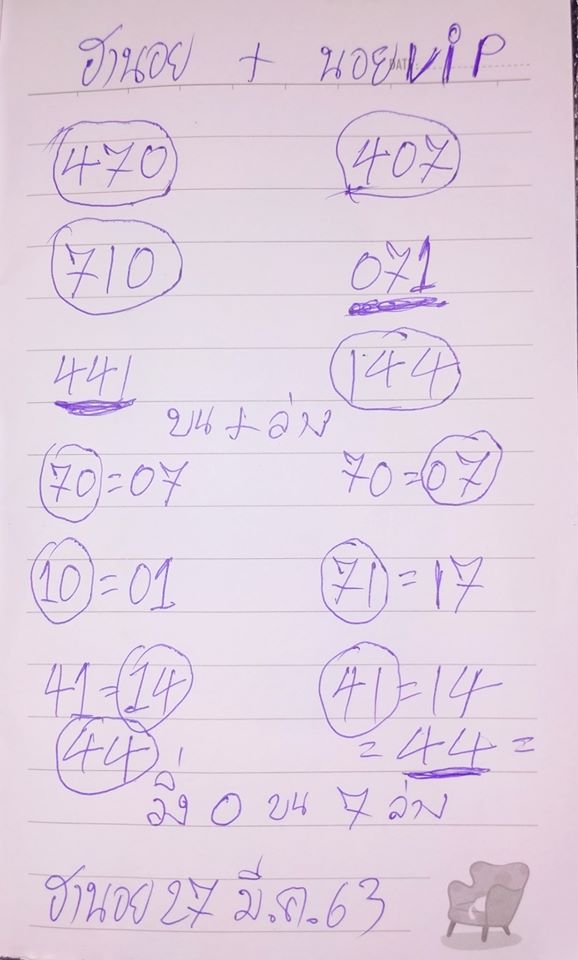 ฮานอย + นอยVIP
DATE
470 407
710 071
441 144
บน + ล่าง
70=07 70=07
10=01 71=17
41=14 41=14
44 =44=
วิ่ง 0 บน 7 ล่าง
ฮานอย 27 มี.ค.63